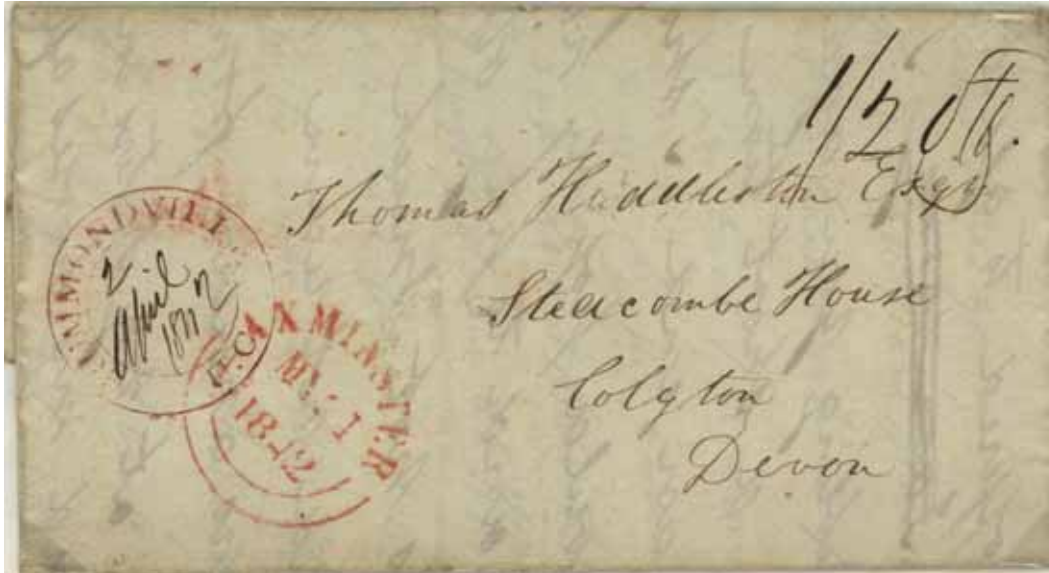 1/2 Stg.
Thomas Huddleston Esqr
Steacombe House
Colyton
Devon
UMMONDVILL
2
April
AXMINSTER
MY 1
1842